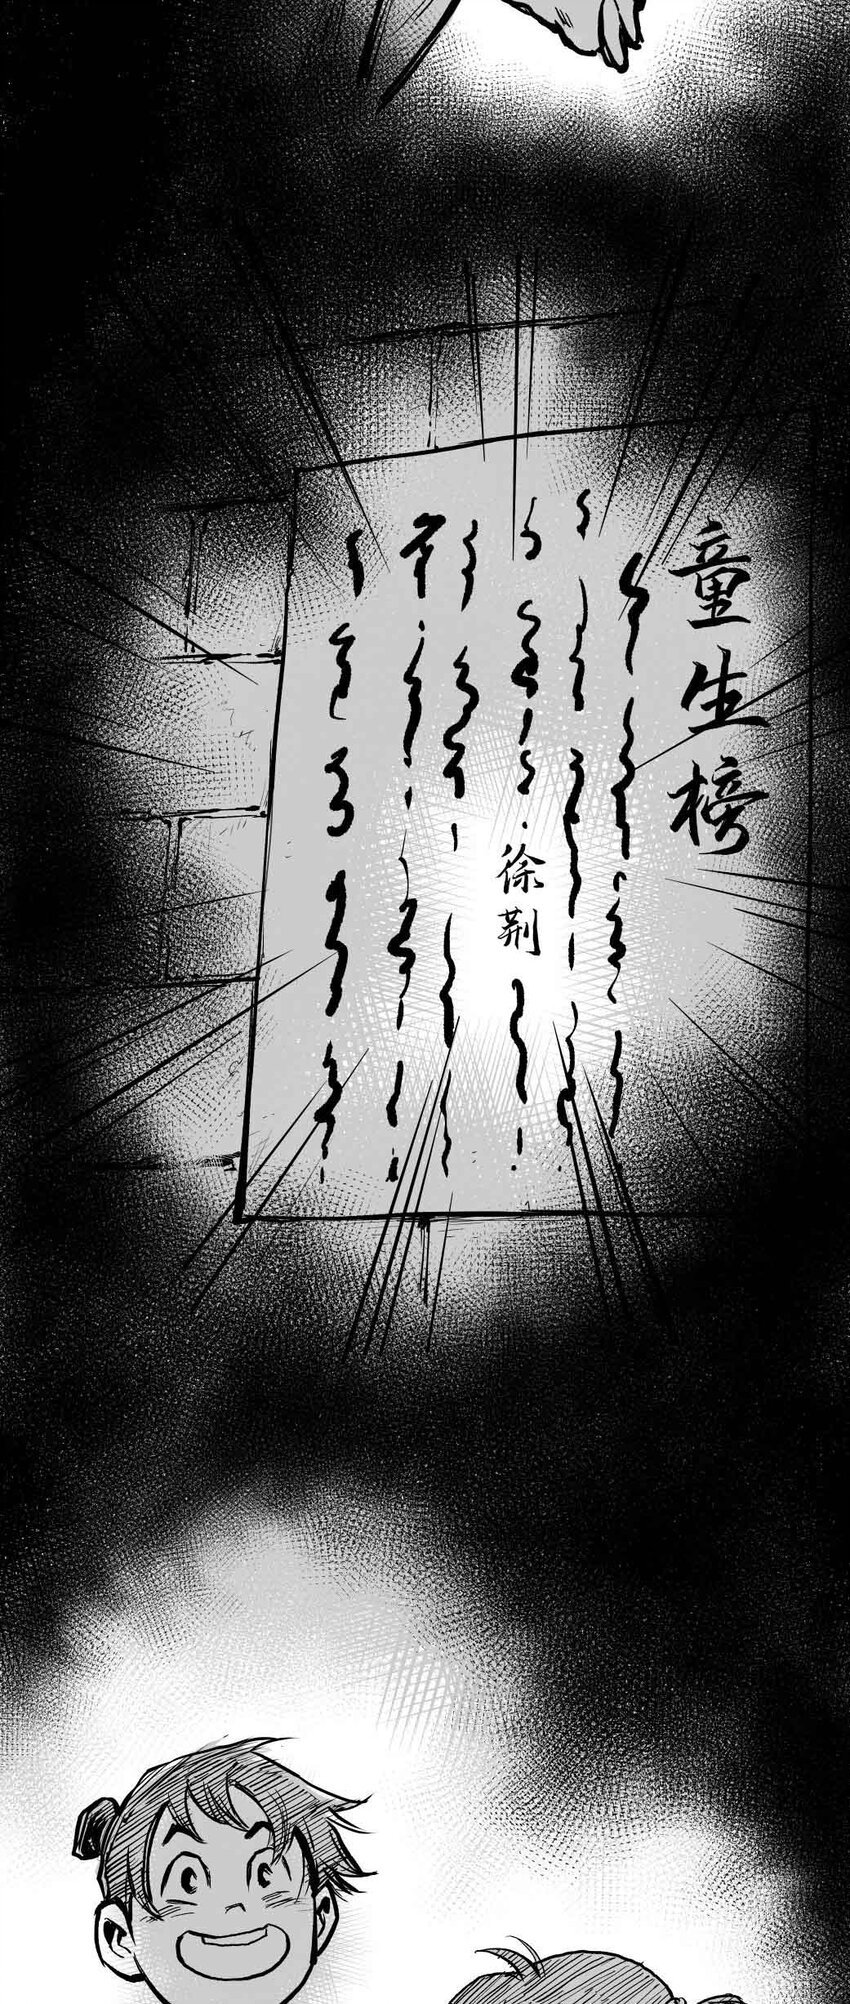 童生榜
徐荆